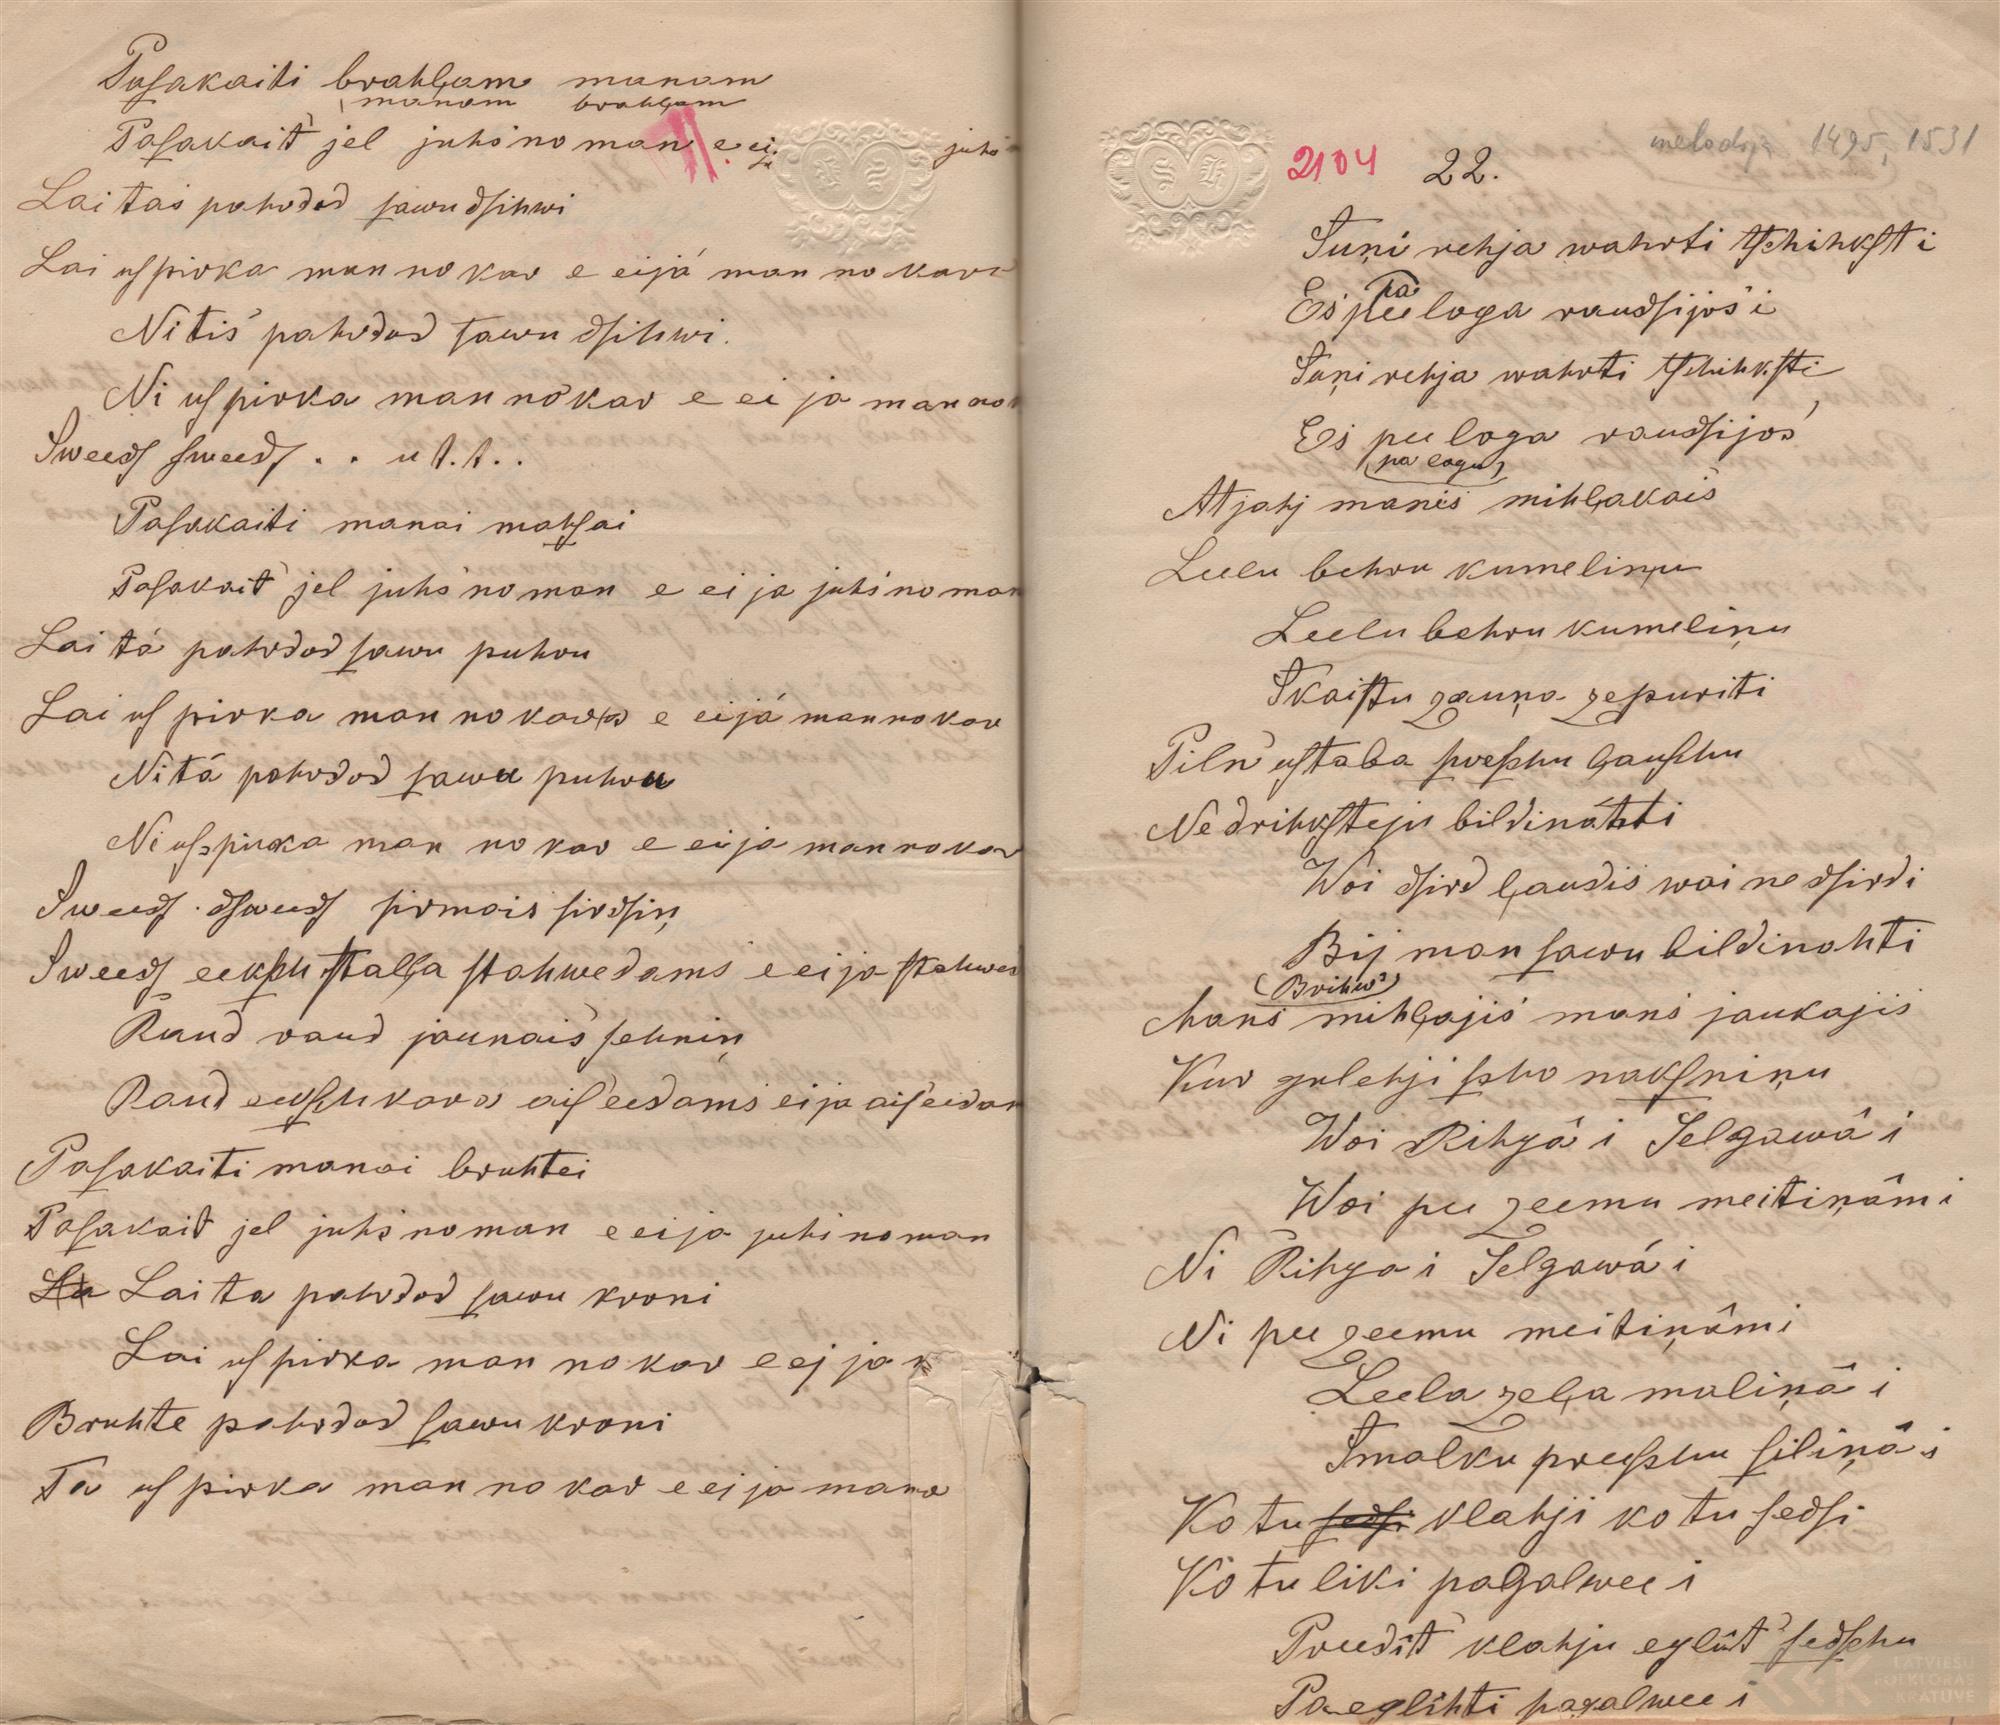 Pasakaiti brahļam manam
manam brahļam
Pasakait' jel juhs no man e ei juhs
Lai tas pahrdod sawu dsihwi
Lai uspirka man no kar e eija man no kara
Ni tis pahrdod sawu dsihwi.
Ni uspirka man no kar e ei ja man no
Sweeds sweeds . . u t. t. .
Pasakaiti manai mahsai
Pasakait' jel juhs no man e ei ja juhs no man
Lai tá pahrdod sawu puhru
Lai uspirka man no kara e eijá man no kar
Ni tá pahrdod sawu puhru
Ni uspirka man no kar e eija man no kar
Sweeds dsweeds sirmais sirdsiņ
Sweeds eeksch staļļa stahwedams e ei ja stahwed
Raud raud jaunais sehniņ
Raud eeksch kara aiseedams ei ja aiseedam
Pasakaiti manai bruhtei
Pasakait jel juhs no man e ei ja juhs no man
Lai ta pahrdod sawu kroni
Lai uspirka man no kar e ej ja
Bruhte pahrdod sawu kroni
Ta uspirka man no kar e ei ja man
melodija 1495, 1531
2104 22.
Suņi rehja wahrti tschihksti
pa
Es pee loga raudsijos i
Suņi rehja wahrti tschihksti
Es pee loga raudsijos
(pa logu)
Atjahj manis mihļakais
Leelu behru kumeliņu
Leelu behru kumeliņu
Skaistu zauņa zepuriti
Piln' ustaba sweschu ļauschu
Nedrihksteju bildinahti
Woi dsird ļaudis woi ne dsirdi
Bij man sawu bildinahti
(Brihw')
Mans mihļajis mans jaukajis
Kur gulehji scho naksniņu
Woi Rihgâ i Jelgawâ i
Woi pee zeemu meitiņâm i
Ni Rihga i Jelgawá i
Ni pee zeemu meitiņâm i
Leela zeļa maliņâ i
Smalku preeschu siliņâ i
Ko tu sedsi klahji ko tu sedsi
Ko tu liki pagalwee i
Preedit' klahju eglit' sedschu
Paeglihti pagalwee i
LATVIEŠU
FOLKLORAS
KRĀTUVE